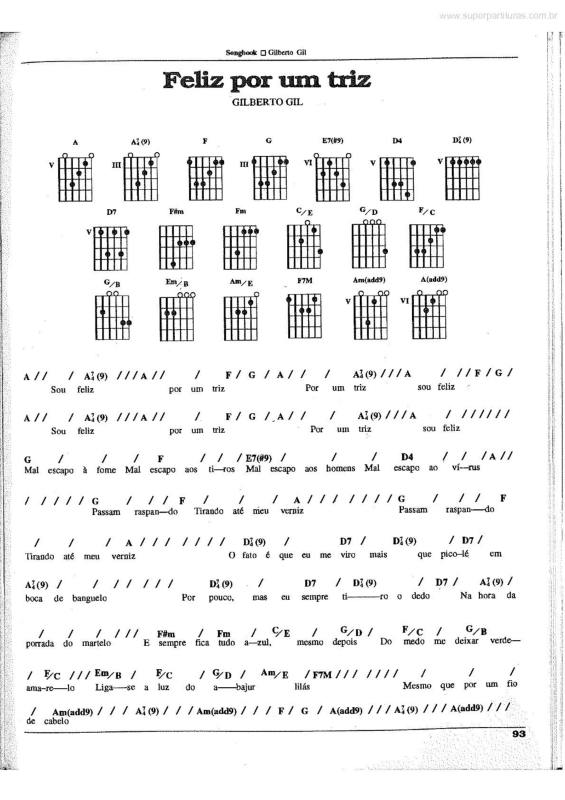 www.superpartituras.com.br
Songbook ❏ Gilberto Gil
Feliz por um triz
GILBERTO GIL
A A⁷₄(9) F G E7(#9) D4 D⁷₄(9)
V III III VI V V
D7 F#m Fm C/E G/D F/C
V
G/B Em/B Am/E F7M Am(add9) A(add9)
V VI
A / / / A⁷₄(9) / / / A / / / F / G / A / / / A⁷₄(9) / / / A / / / F / G /
Sou feliz por um triz Por um triz sou feliz
A / / / A⁷₄(9) / / / A / / / F / G / A / / / A⁷₄(9) / / / A / / / / / / /
Sou feliz por um triz Por um triz sou feliz
G / / / F / / / E7(#9) / / / D4 / / / A / /
Mal escapo à fome Mal escapo aos ti—ros Mal escapo aos homens Mal escapo ao ví—rus
/ / / / / G / / / F / / / A / / / / / / / G / / / F
Passam raspan—do Tirando até meu verniz Passam raspan—do
/ / / A / / / / / / / D⁷₄(9) / D7 / D⁷₄(9) / D7 /
Tirando até meu verniz O fato é que eu me viro mais que pico—lé em
A⁷₄(9) / / / / / / / D⁷₄(9) / D7 / D⁷₄(9) / D7 / A⁷₄(9) /
boca de banguelo Por pouco, mas eu sempre ti—ro o dedo Na hora da
/ / / / / / F#m / Fm / C/E / G/D / F/C / G/B
porrada do martelo E sempre fica tudo a—zul, mesmo depois Do medo me deixar verde—
/ F/C / / / Em/B / F/C / G/D / Am/E / F7M / / / / / / / / / /
ama-re—lo Liga—se a luz do a—bajur lilás Mesmo que por um fio
/ Am(add9) / / / A⁷₄(9) / / / Am(add9) / / / F / G / A(add9) / / / A⁷₄(9) / / / A(add9) / / /
de cabelo
93